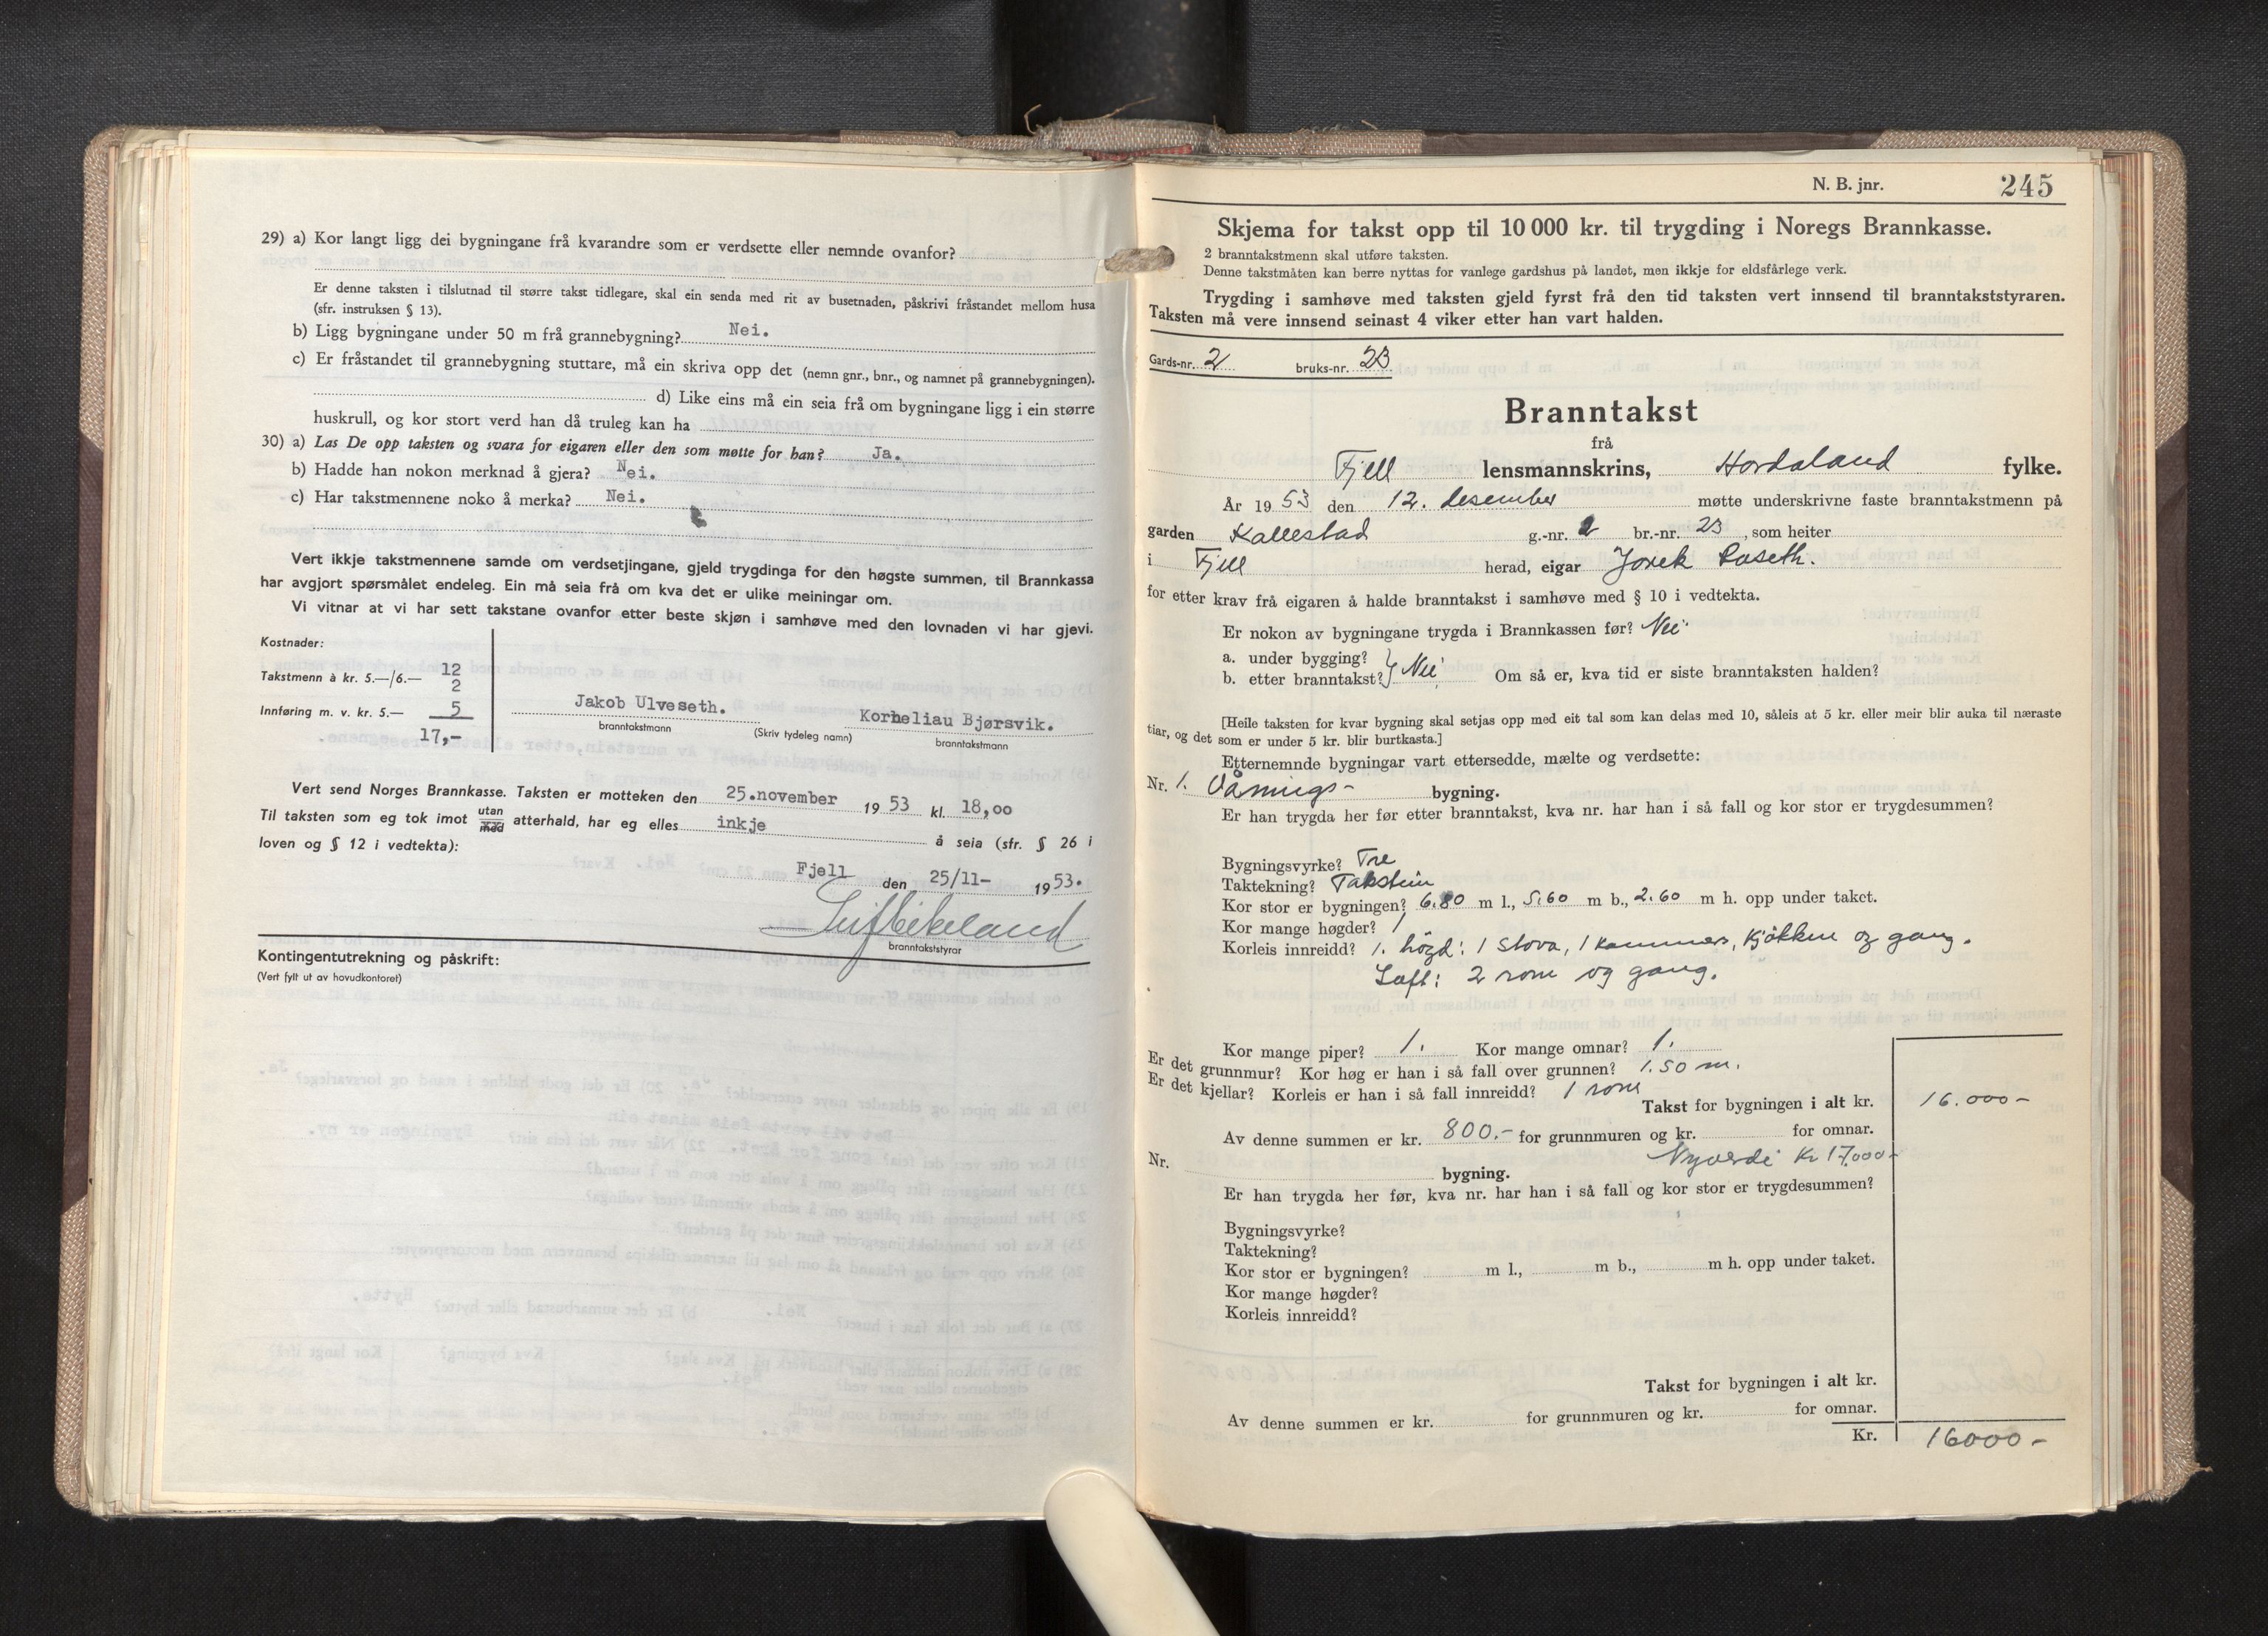 29) a) Kor langt ligg dei bygningane frå kvarandre som er verdsette eller nemnde ovanfor?
Er denne taksten i tilslutnad til større takst tidlegare, skal ein senda med rit av busetnaden, påskrivi fråstandet mellom husa
(sfr. instruksen § 13).
b) Ligg bygningane under 50 m frå grannebygning? Nei.
c) Er fråstandet til grannebygning stuttare, må ein skriva opp det (nemn gnr., bnr., og namnet på grannebygningen).
d) Like eins må ein seia frå om bygningane ligg i ein større
huskrull, og kor stort verd han då truleg kan ha
30) a) Las De opp taksten og svara for eigaren eller den som møtte for han? Ja.
b) Hadde han nokon merknad å gjera? Nei.
c) Har takstmennene noko å merka? Nei.
Vert ikkje takstmennene samde om verdsetjingane, gjeld trygdinga for den høgste summen, til Brannkassa
har avgjort spørsmålet endeleg. Ein må seia frå om kva det er ulike meiningar om.
Vi vitnar at vi har sett takstane ovanfor etter beste skjøn i samhøve med den lovnaden vi har gjevi.
Kostnader:
Takstmenn à kr. 5.—/6.— 12
2
Innføring m. v. kr. 5.— 5
17,-
Jakob Ulveseth. Korneliau Bjørsvik.
branntakstmann (Skriv tydeleg namn) branntakstmann
Vert send Norges Brannkasse. Taksten er motteken den 25.november 1953 kl. 18,oo
Til taksten som eg tok imot utan med atterhald, har eg elles inkje å seia (sfr. § 26 i
loven og § 12 i vedtekta):
Fjell den 25/11- 1953.
branntakststyrar
Kontingentutrekning og påskrift:
(Vert fylt ut av hovudkontoret)
N. B. jnr. 245
Skjema for takst opp til 10 000 kr. til trygding i Noregs Brannkasse.
2 branntakstmenn skal utføre taksten.
Denne takstmåten kan berre nyttas for vanlege gardshus på landet, men ikkje for eldsfårlege verk.
Trygding i samhøve med taksten gjeld fyrst frå den tid taksten vert innsend til branntakststyraren.
Taksten må vere innsend seinast 4 viker etter han vart halden.
Gards-nr. 2 bruks-nr. 23
Branntakst
frå
Fjell lensmannskrins, Hordaland fylke.
År 1953 den 12. desember møtte underskrivne faste branntakstmenn på
garden Kallestad g.-nr. 2 br.-nr. 23, som heiter
i Fjell herad, eigar
for etter krav frå eigaren å halde branntakst i samhøve med § 10 i vedtekta.
Er nokon av bygningane trygda i Brannkassen før? Nei
a. under bygging?
b. etter branntakst? } Nei Om så er, kva tid er siste branntaksten halden?
[Heile taksten for kvar bygning skal setjas opp med eit tal som kan delas med 10, såleis at 5 kr. eller meir blir auka til næraste
tiar, og det som er under 5 kr. blir burtkasta.]
Etternemnde bygningar vart ettersedde, mælte og verdsette:
Nr. 1. Vånings- bygning.
Er han trygda her før etter branntakst, kva nr. har han i så fall og kor stor er trygdesummen?
Bygningsvyrke? Tre
Taktekning? Takstein
Kor stor er bygningen? 6.80 m l., 5.60 m b., 2.60 m h. opp under taket.
Kor mange høgder? 1
Korleis innreidd? 1. högd: 1 stova, 1 kammers, kjøkken og gang.
Loft: 2 rom og gang.
Kor mange piper? 1. Kor mange omnar? 1.
Er det grunnmur? Kor høg er han i så fall over grunnen? 1.50 m.
Er det kjellar? Korleis er han i så fall innreidd? 1 rom
Takst for bygningen i alt kr. 16.000-
Av denne summen er kr. 800.- for grunnmuren og kr. for omnar.
Nyverdi Kr 17.000-
Nr. bygning.
Er han trygda her før, kva nr. har han i så fall og kor stor er trygdesummen?
Bygningsvyrke?
Taktekning?
Kor stor er bygningen? m l., m b., m h. opp under taket.
Kor mange høgder?
Korleis innreidd?
Takst for bygningen i alt kr.
Av denne summen er kr. for grunnmuren og kr. for omnar.
Kr. 16000-